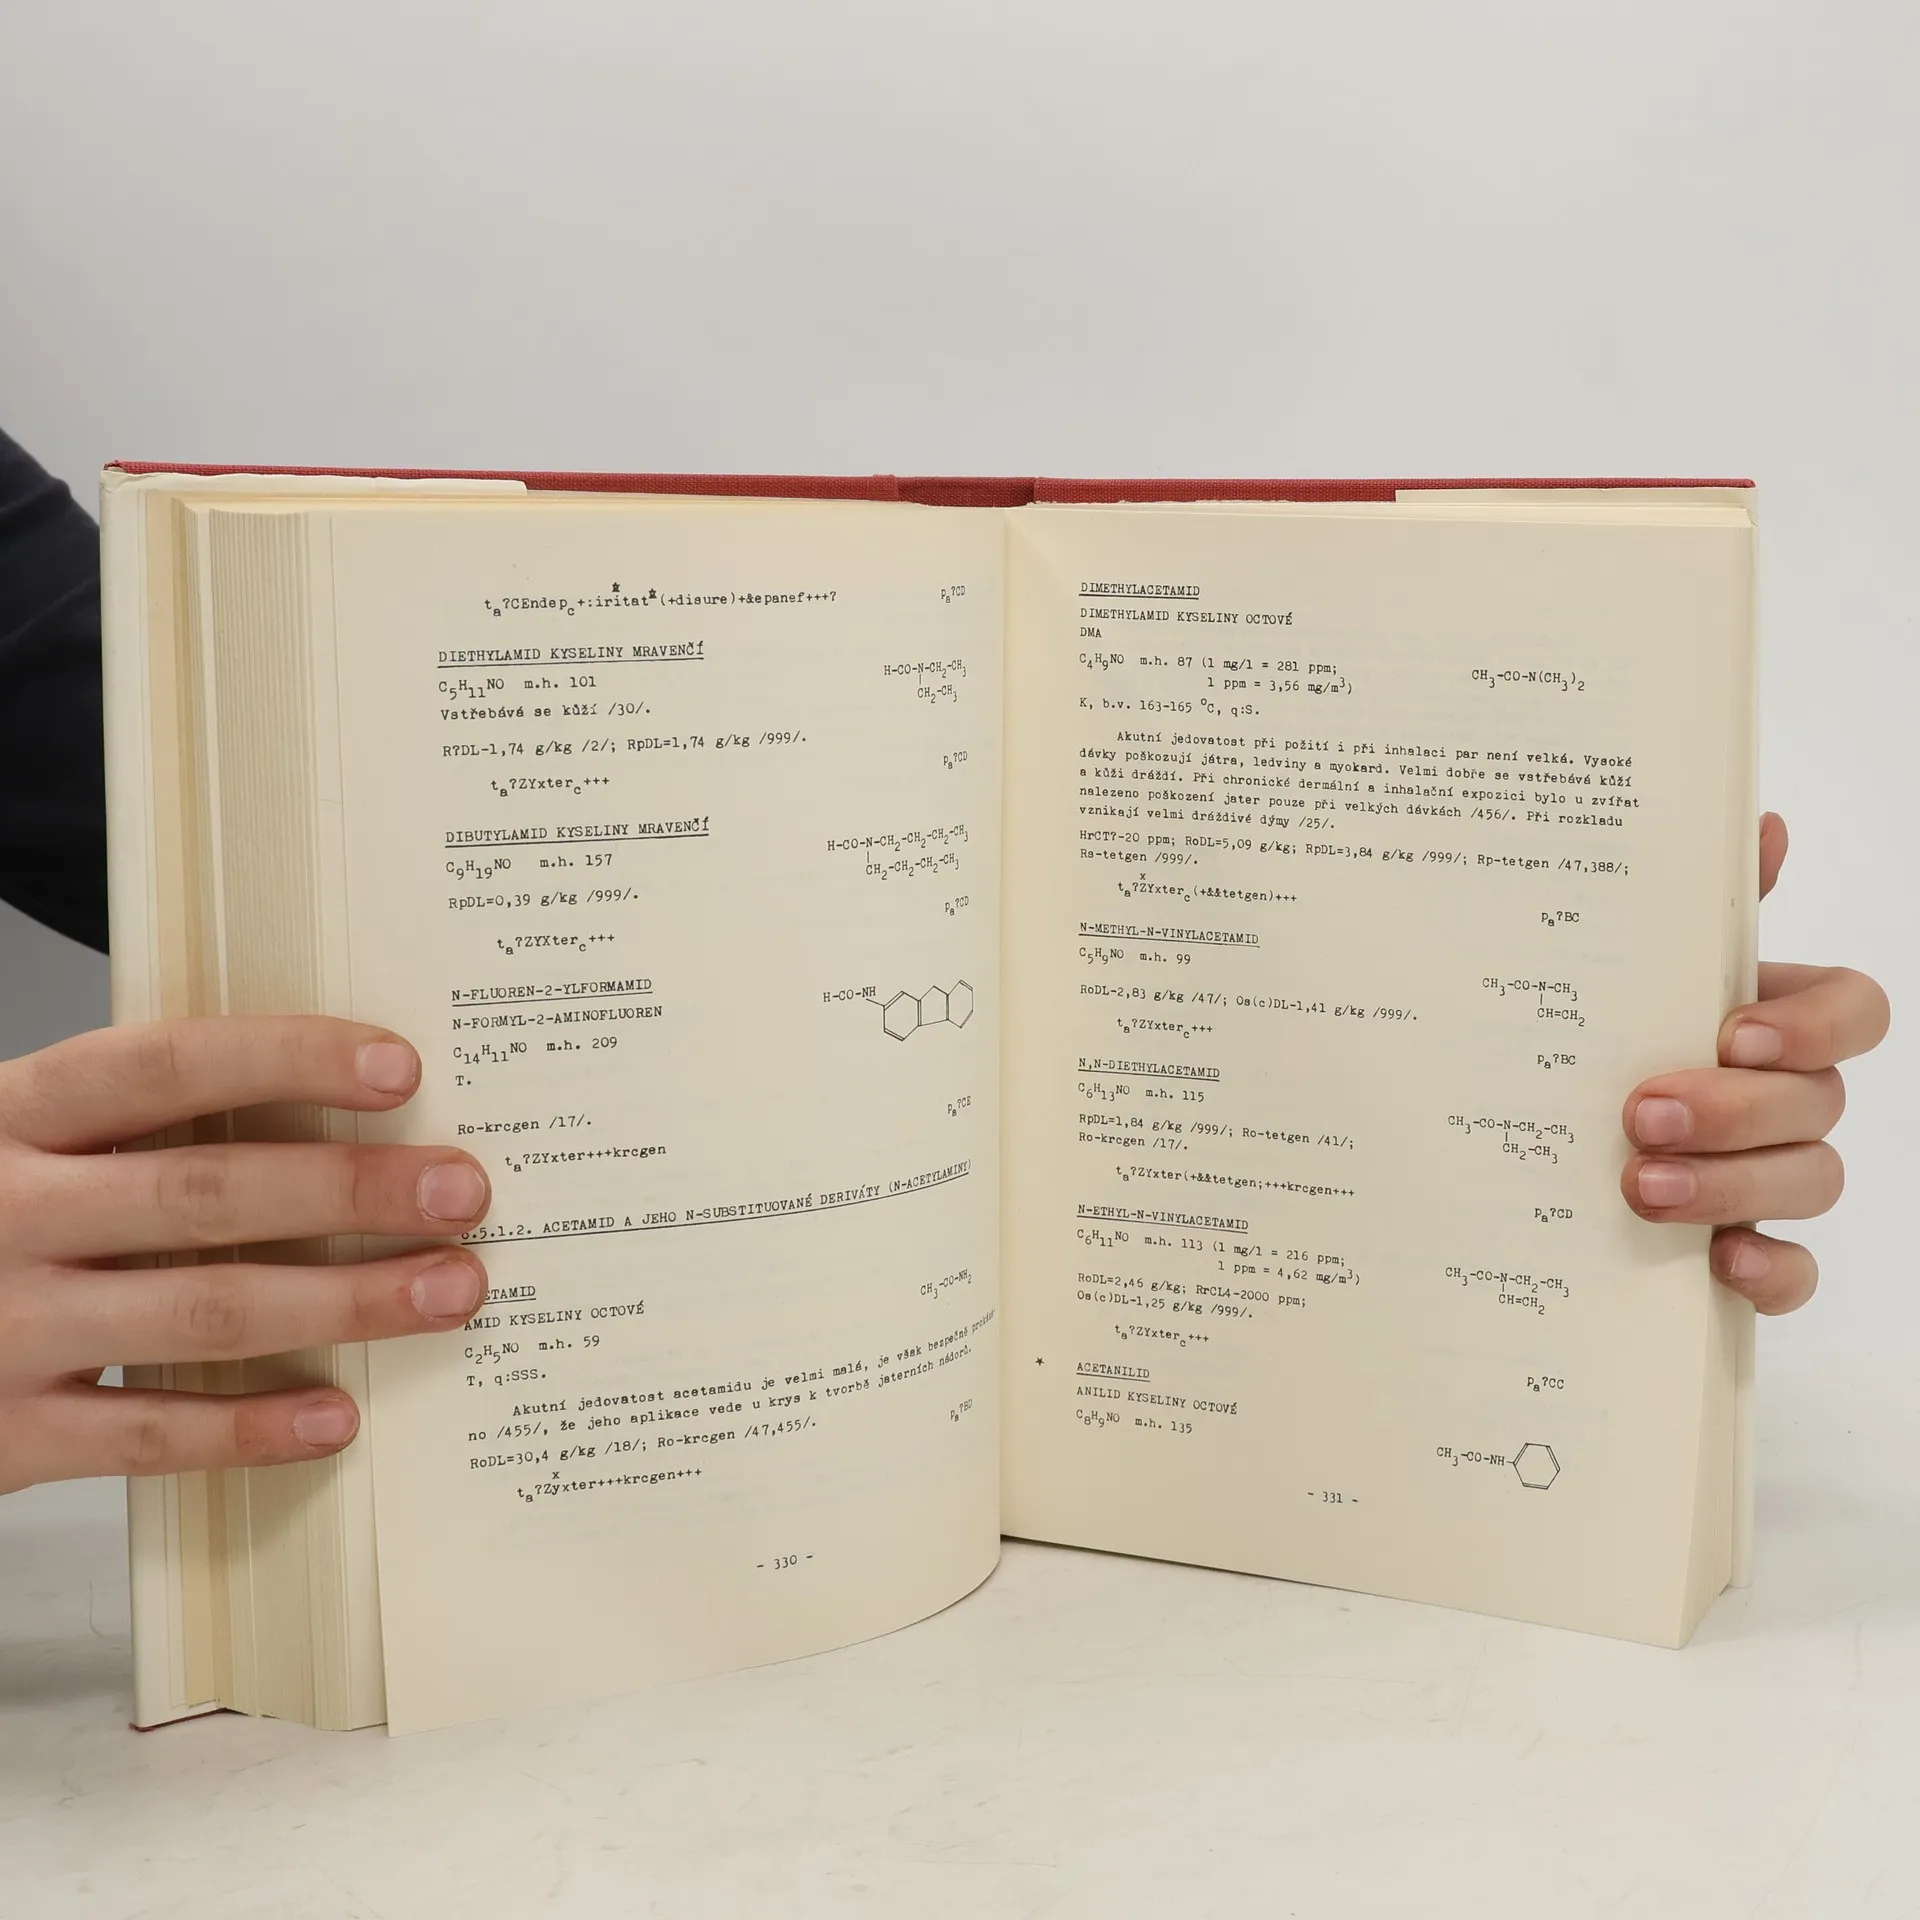 ta?CEndepc+:iritat(+disure)+&epanef+++?
pa?CD
DIETHYLAMID KYSELINY MRAVENČÍ
C5H11NO m.h. 101
H-CO-N-CH2-CH3
CH2-CH3
Vstřebává se kůží /30/.
R?DL-1,74 g/kg /2/; RpDL=1,74 g/kg /999/.
pa?CD
ta?ZYxterc+++
DIBUTYLAMID KYSELINY MRAVENČÍ
C9H19NO m.h. 157
H-CO-N-CH2-CH2-CH2-CH3
CH2-CH2-CH2-CH3
RpDL=0,39 g/kg /999/.
pa?CD
ta?ZYXterc+++
N-FLUOREN-2-YLFORMAMID
N-FORMYL-2-AMINOFLUOREN
H-CO-NH
C14H11NO m.h. 209
T.
Ro-krcgen /17/.
pa?CE
ta?ZYxter+++krcgen
.5.1.2. ACETAMID A JEHO N-SUBSTITUOVANÉ DERIVÁTY (N-ACETYLAMINY)
ETAMID
AMID KYSELINY OCTOVÉ
CH3-CO-NH2
C2H5NO m.h. 59
T, q:SSS.
Akutní jedovatost acetamidu je velmi malá, je však bezpečně prokázá-
no /455/, že jeho aplikace vede u krys k tvorbě jaterních nádorů.
RoDL=30,4 g/kg /18/; Ro-krcgen /47,455/.
pa?BD
x
ta?Zyxter+++krcgen+++
- 330 -
DIMETHYLACETAMID
DIMETHYLAMID KYSELINY OCTOVÉ
DMA
C4H9NO m.h. 87 (1 mg/l = 281 ppm;
1 ppm = 3,56 mg/m3)
CH3-CO-N(CH3)2
K, b.v. 163-165 °C, q:S.
Akutní jedovatost při požití i při inhalaci par není velká. Vysoké
dávky poškozují játra, ledviny a myokard. Velmi dobře se vstřebává kůží
a kůži dráždí. Při chronické dermální a inhalační expozici bylo u zvířat
nalezeno poškození jater pouze při velkých dávkách /456/. Při rozkladu
vznikají velmi dráždivé dýmy /25/.
HrCT?-20 ppm; RoDL=5,09 g/kg; RpDL=3,84 g/kg /999/; Rp-tetgen /47,388/;
Rs-tetgen /999/.
x
ta?ZYxterc(+&&tetgen)+++
pa?BC
N-METHYL-N-VINYLACETAMID
C5H9NO m.h. 99
CH3-CO-N-CH3
CH=CH2
RoDL-2,83 g/kg /47/; Os(c)DL-1,41 g/kg /999/.
ta?ZYxterc+++
pa?BC
N,N-DIETHYLACETAMID
C6H13NO m.h. 115
CH3-CO-N-CH2-CH3
CH2-CH3
RpDL=1,84 g/kg /999/; Ro-tetgen /41/;
Ro-krcgen /17/.
ta?ZYxter(+&&tetgen;+++krcgen+++
pa?CD
N-ETHYL-N-VINYLACETAMID
C6H11NO m.h. 113 (1 mg/l = 216 ppm;
1 ppm = 4,62 mg/m3)
CH3-CO-N-CH2-CH3
CH=CH2
RoDL=2,46 g/kg; RrCL4-2000 ppm;
Os(c)DL-1,25 g/kg /999/.
ta?ZYxterc+++
pa?CC
* ACETANILID
ANILID KYSELINY OCTOVÉ
C8H9NO m.h. 135
CH3-CO-NH-
- 331 -